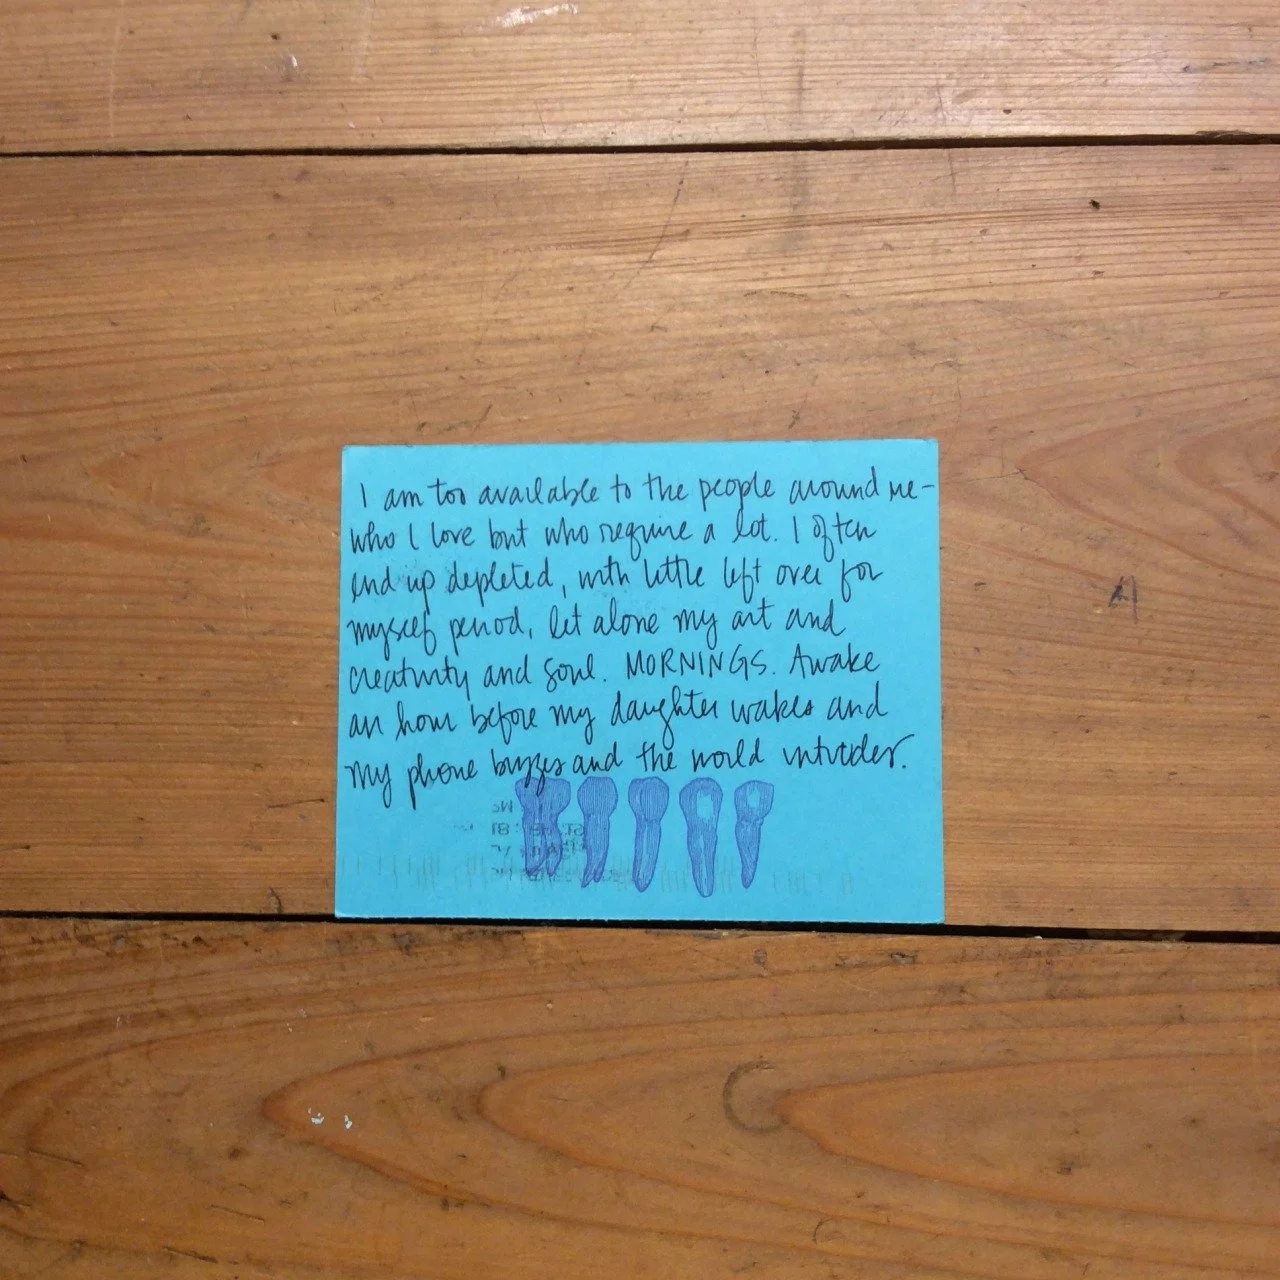 I am too available to the people around me-
who I love but who require a lot. I often
end up depleted, with little left over for
myself period, let alone my art and
creativity and soul. MORNINGS. Awake
an hour before my daughter wakes and
my phone buzzes and the world intrudes.